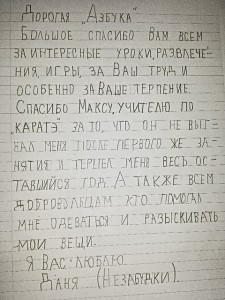 Дорогая „Азбука"
Большое спасибо Вам всем
за интересные уроки, развлече-
ния, игры, за Ваш труд и
особенно за Ваше терпение.
Спасибо Максу, учителю по
„каратэ" за то, что он не выг-
нал меня после первого же за-
нятия и терпел меня весь ос-
тавшийся год. А также всем
добровольцам кто помогал
мне одеваться и разыскивать
мои вещи.
Я Вас люблю
Даня (Незабудки).